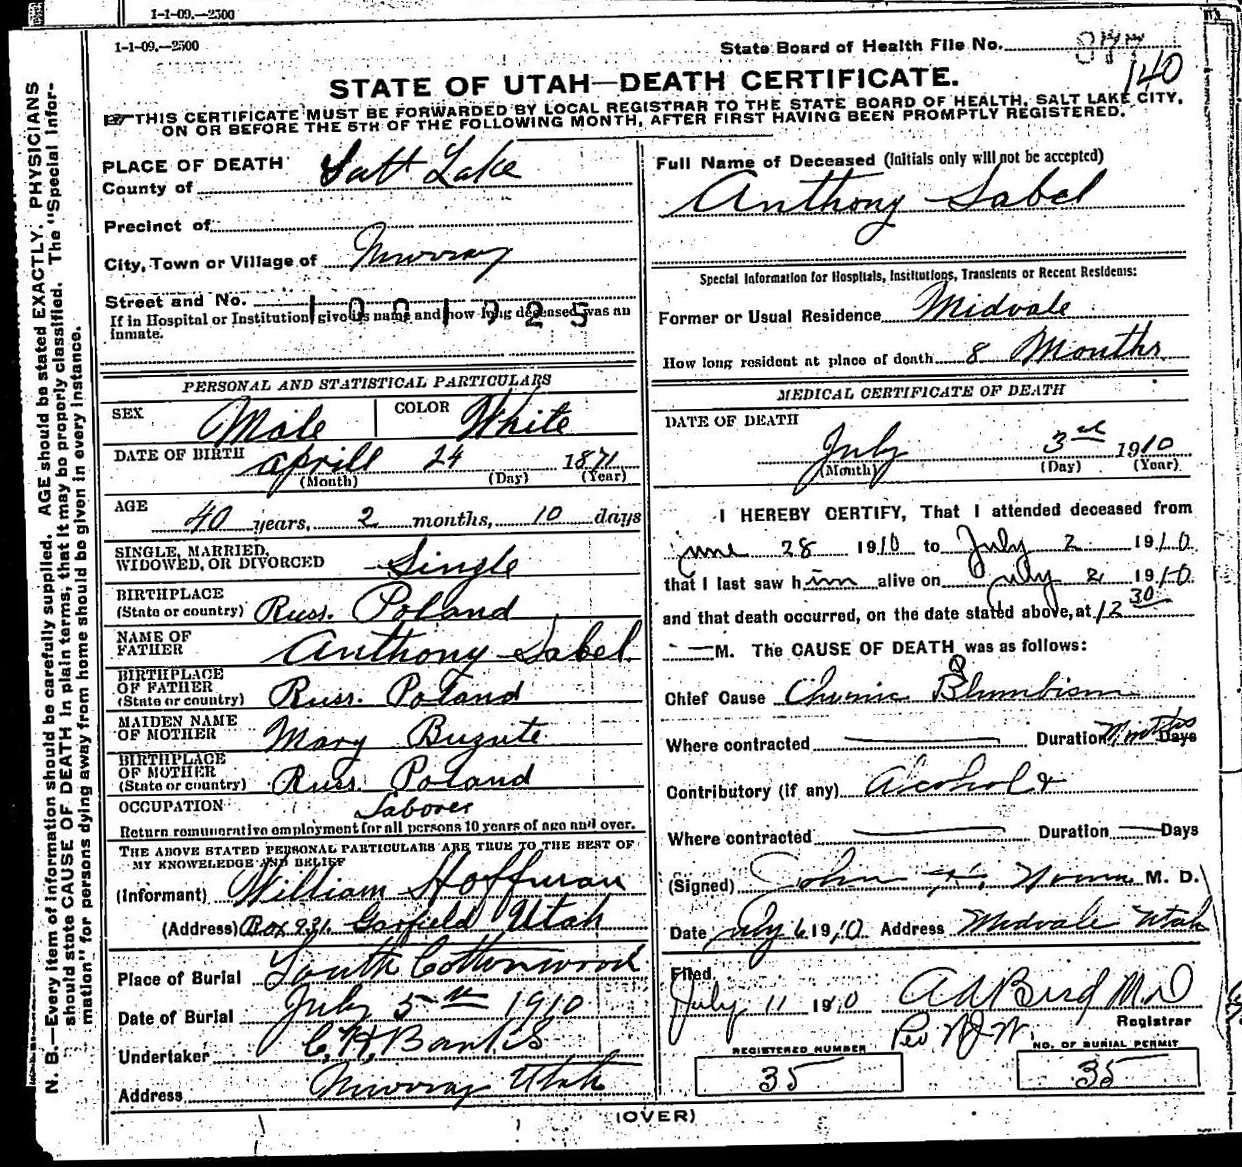 1-1-09.—2500
1-1-09.—2500
State Board of Health File No.
140
STATE OF UTAH—DEATH CERTIFICATE.
☞THIS CERTIFICATE MUST BE FORWARDED BY LOCAL REGISTRAR TO THE STATE BOARD OF HEALTH, SALT LAKE CITY,
ON OR BEFORE THE 5TH OF THE FOLLOWING MONTH, AFTER FIRST HAVING BEEN PROMPTLY REGISTERED.
N. B.—Every item of information should be carefully supplied. AGE should be stated EXACTLY. PHYSICIANS
should state CAUSE OF DEATH in plain terms, that it may be properly classified. The "Special Infor-
mation" for persons dying away from home should be given in every instance.
PLACE OF DEATH
County of Salt Lake
Precinct of
City, Town or Village of Murray
Street and No.
1001925
If in Hospital or Institution give its name and how long deceased was an
inmate.
PERSONAL AND STATISTICAL PARTICULARS
SEX Male COLOR White
DATE OF BIRTH Aprill 24 1871
(Month) (Day) (Year)
AGE 40 years, 2 months, 10 days
SINGLE, MARRIED,
WIDOWED, OR DIVORCED Single
BIRTHPLACE
(State or country) Russ. Poland
NAME OF
FATHER Anthony Sabel
BIRTHPLACE
OF FATHER
(State or country) Russ. Poland
MAIDEN NAME
OF MOTHER Mary Buzute
BIRTHPLACE
OF MOTHER
(State or country) Russ. Poland
OCCUPATION Laborer
Return remunerative employment for all persons 10 years of age and over.
THE ABOVE STATED PERSONAL PARTICULARS ARE TRUE TO THE BEST OF
MY KNOWELEDGE AND BELIEF
(Informant) William Hoffman
(Address) Box 931. Garfield Utah
Place of Burial South Cottonwood
Date of Burial July 5th 1910
Undertaker C. H. Banks
Address Murray Utah
Full Name of Deceased (Initials only will not be accepted)
Anthony Sabel
Special Information for Hospitals, Institutions, Transients or Recent Residents:
Former or Usual Residence Midvale
How long resident at place of death 8 Months
MEDICAL CERTIFICATE OF DEATH
DATE OF DEATH
July 3rd 1910
(Month) (Day) (Year)
I HEREBY CERTIFY, That I attended deceased from
June 28 1910 to July 2 1910
that I last saw him alive on July 2 1910
and that death occurred, on the date stated above, at 12 30
M. The CAUSE OF DEATH was as follows:
Chief Cause Chronic Plumbism
Where contracted Duration Months Days
Contributory (if any) Alcohol
Where contracted Duration Days
(Signed) John M. D.
Date July 6 1910 Address Midvale Utah
Filed
July 11 1910 A D Bird M D
Registrar
Per N J W.
REGISTERED NUMBER NO. OF BURIAL PERMIT
35 35
(OVER)